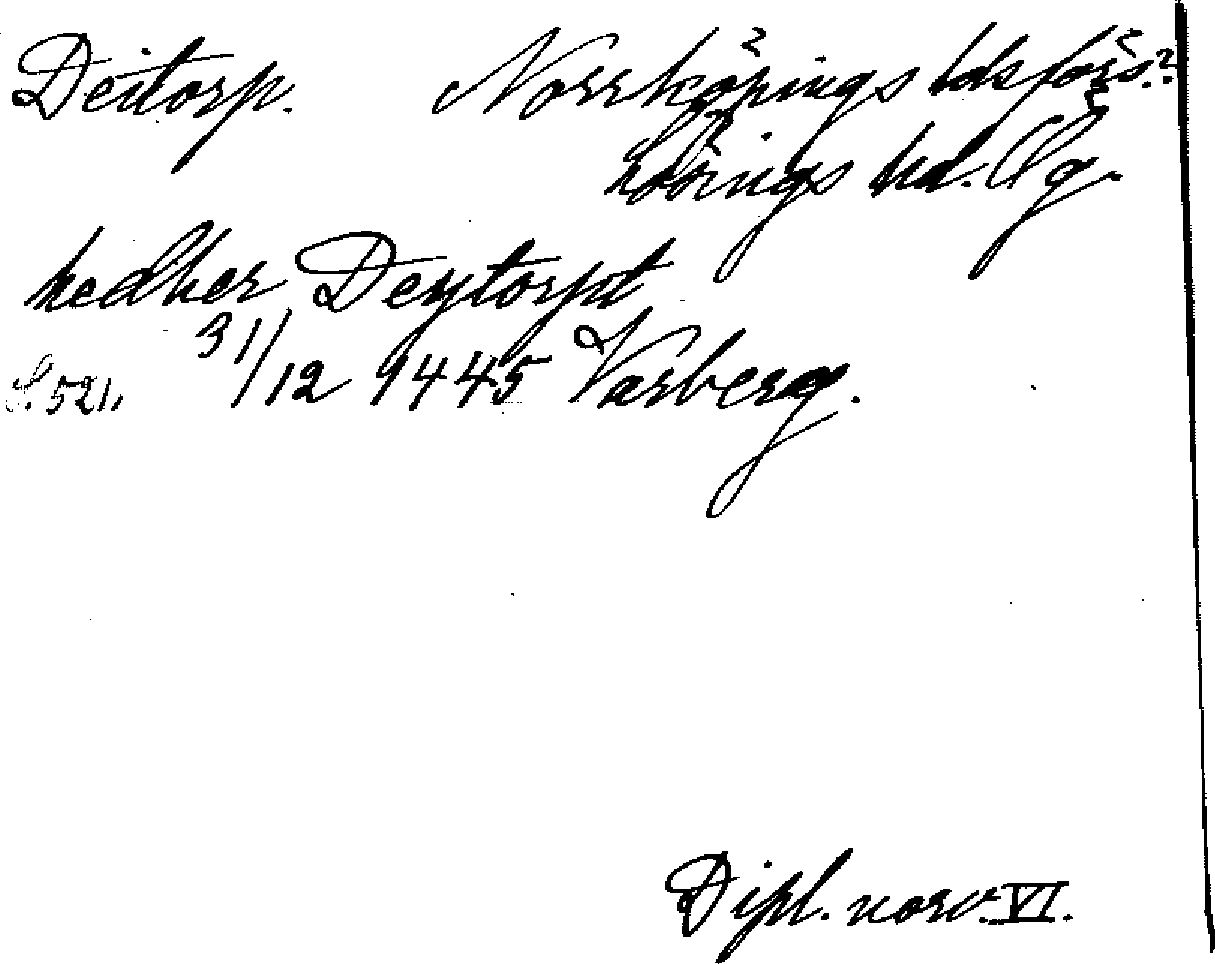 Deitorp. Norrköpings ldsförs.?
Lösings hd. Ög.
nedher Deytorpt
S. 521. 31/12 1445 Varberg.
Dipl. norv. VI.